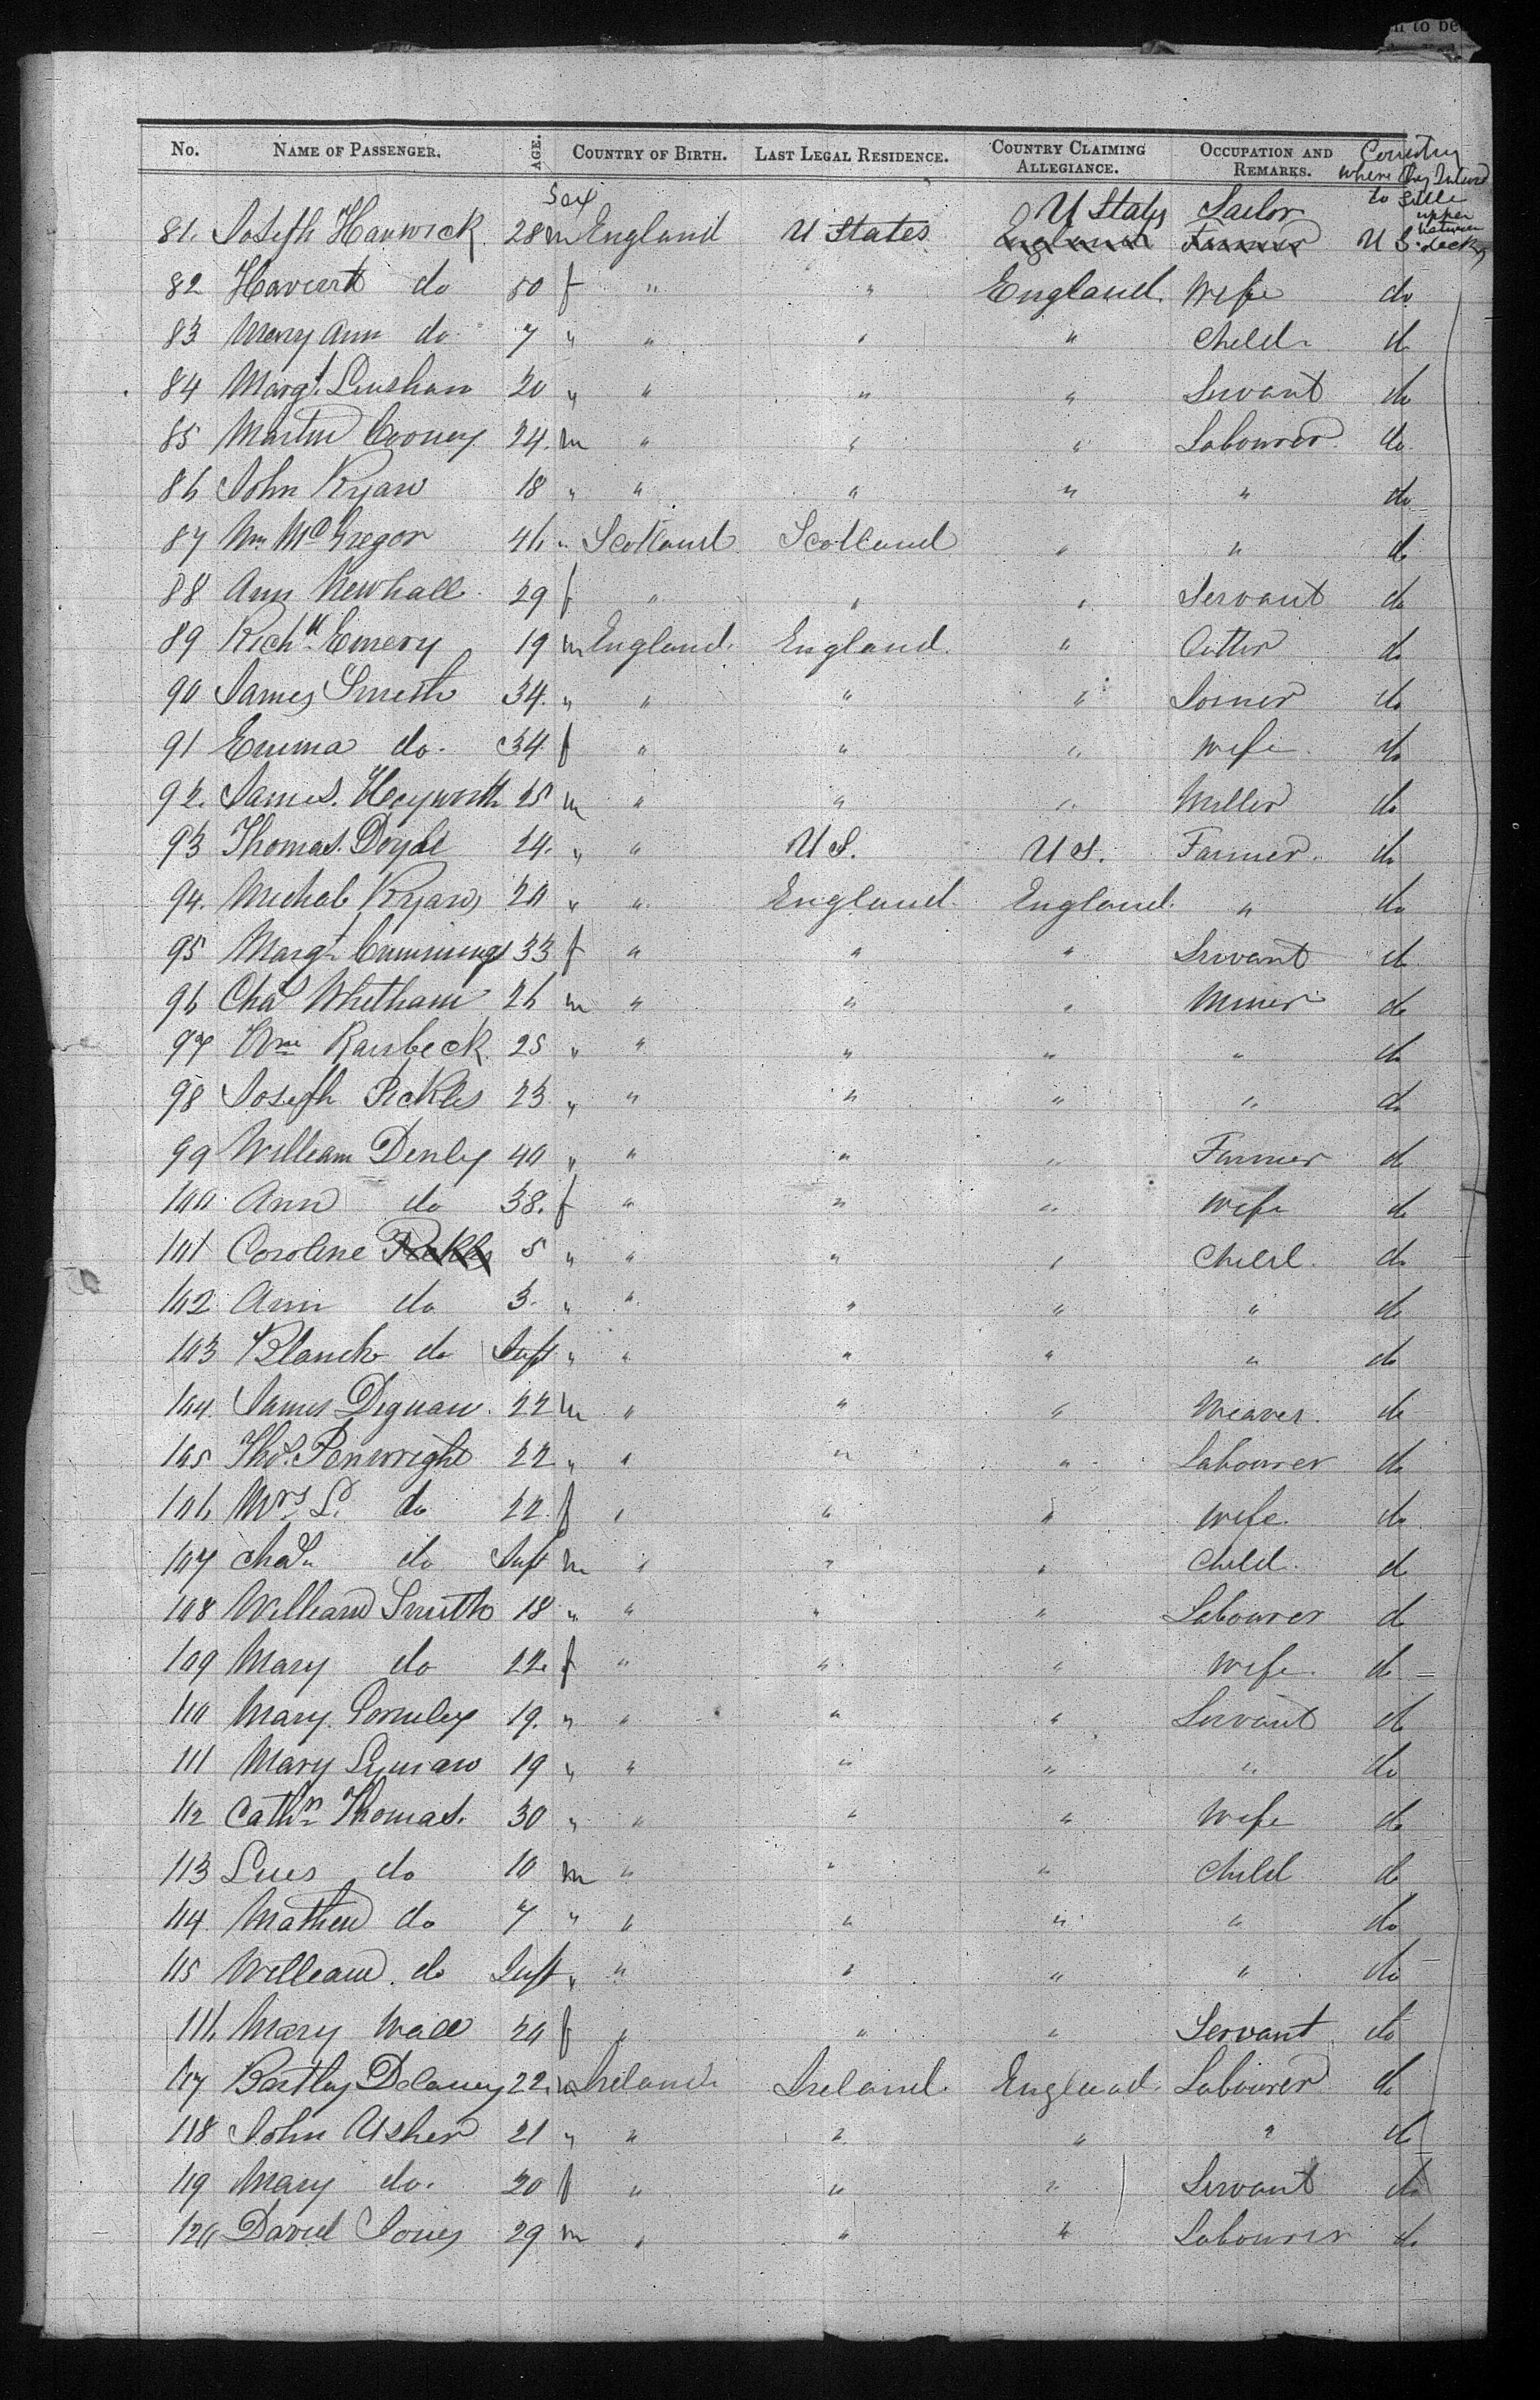 n to be
No. NAME OF PASSENGER. AGE. COUNTRY OF BIRTH. LAST LEGAL RESIDENCE. COUNTRY CLAIMING ALLEGIANCE. OCCUPATION AND REMARKS. Country where they Intend to Settle
Sex U States Sailor upper between decks
81. Joseph Harwick 28 m England U States England Farmer U S.
82 Harriet do 50 f " " England. Wife do
83 Mary Ann do 7 " " " " Child. do
84 Margt. 20 " " " " Servant do
85 Martin Cooney 24. m " " " Labourer. do
86 John Ryan 18 " " " " " do
87 Wm McGregor 46 " Scotland Scotland " " do
88 Ann Newhall 29 f " " " Servant do
89 Richd. Emery 19 m England. England. " do
90 James Smith 34. " " " " Joiner do
91 Emma do. 34 f " " " Wife do
92. James. Heyworth 25 m " " " Miller do
93 Thomas. Doyle 24. " " U S. U S. Farmer. do
94. Michal Ryan 20 " " England. England. " do
95 Margt Cummings 33 f " " " Servant do
96 Chas Whitham 26 m " " " Miner do
97 Wm Rawbeck 25 " " " " " do
98 Joseph Pickles 23 " " " " " do
99 William Denby 40 " " " " Farmer do
100 Ann do 38. f " " " Wife do
101 Caroline Pickles 5 " " " " Child. do
102 Ann do 3. " " " " " do
103 Blanch do Inft " " " " " do
104. James Dignan. 22 m " " " Weaver. do
105 Thos. Penwright 22 " " " " Labourer do
106 Mrs L. do 22. f " " " Wife. do
107 Chas do Inft m " " " Child. do
108 William Smith 18 " " " " Labourer do
109 Mary do 22. f " " " Wife. do
110 Mary Gormley 19. " " " " Servant do
111 Mary 19 " " " " " do
112 Cathn Thomas. 30 " " " " Wife do
113 do 10 m " " " Child do
114 Mathew do 7 " " " " " do
115 William. do Inft " " " " " do
116 Mary Wall 20 f " " " Servant do
117 Bartley Delaney 22. m Ireland Ireland. England. Labourer do
118 John Usher 21 " " " " " do
119 Mary do. 20 f " " " Servant do
120 David Jones 29 m " " " Labourer do